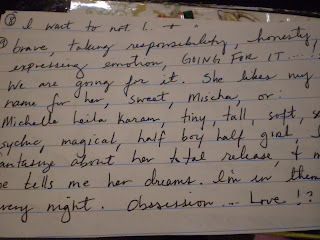 ⑧ I want to not
brave, taking responsibility, honesty,
expressing emotion, GOING FOR IT.....
We are going for it. She likes my
name for her, sweet, Mischa, or:
Michelle Leila Karam, tiny, tall, soft, s
psychic, magical, half boy half girl, I
fantasize about her total release, & m
he tells me her dreams. I'm in them
every night. Obsession... Love!?